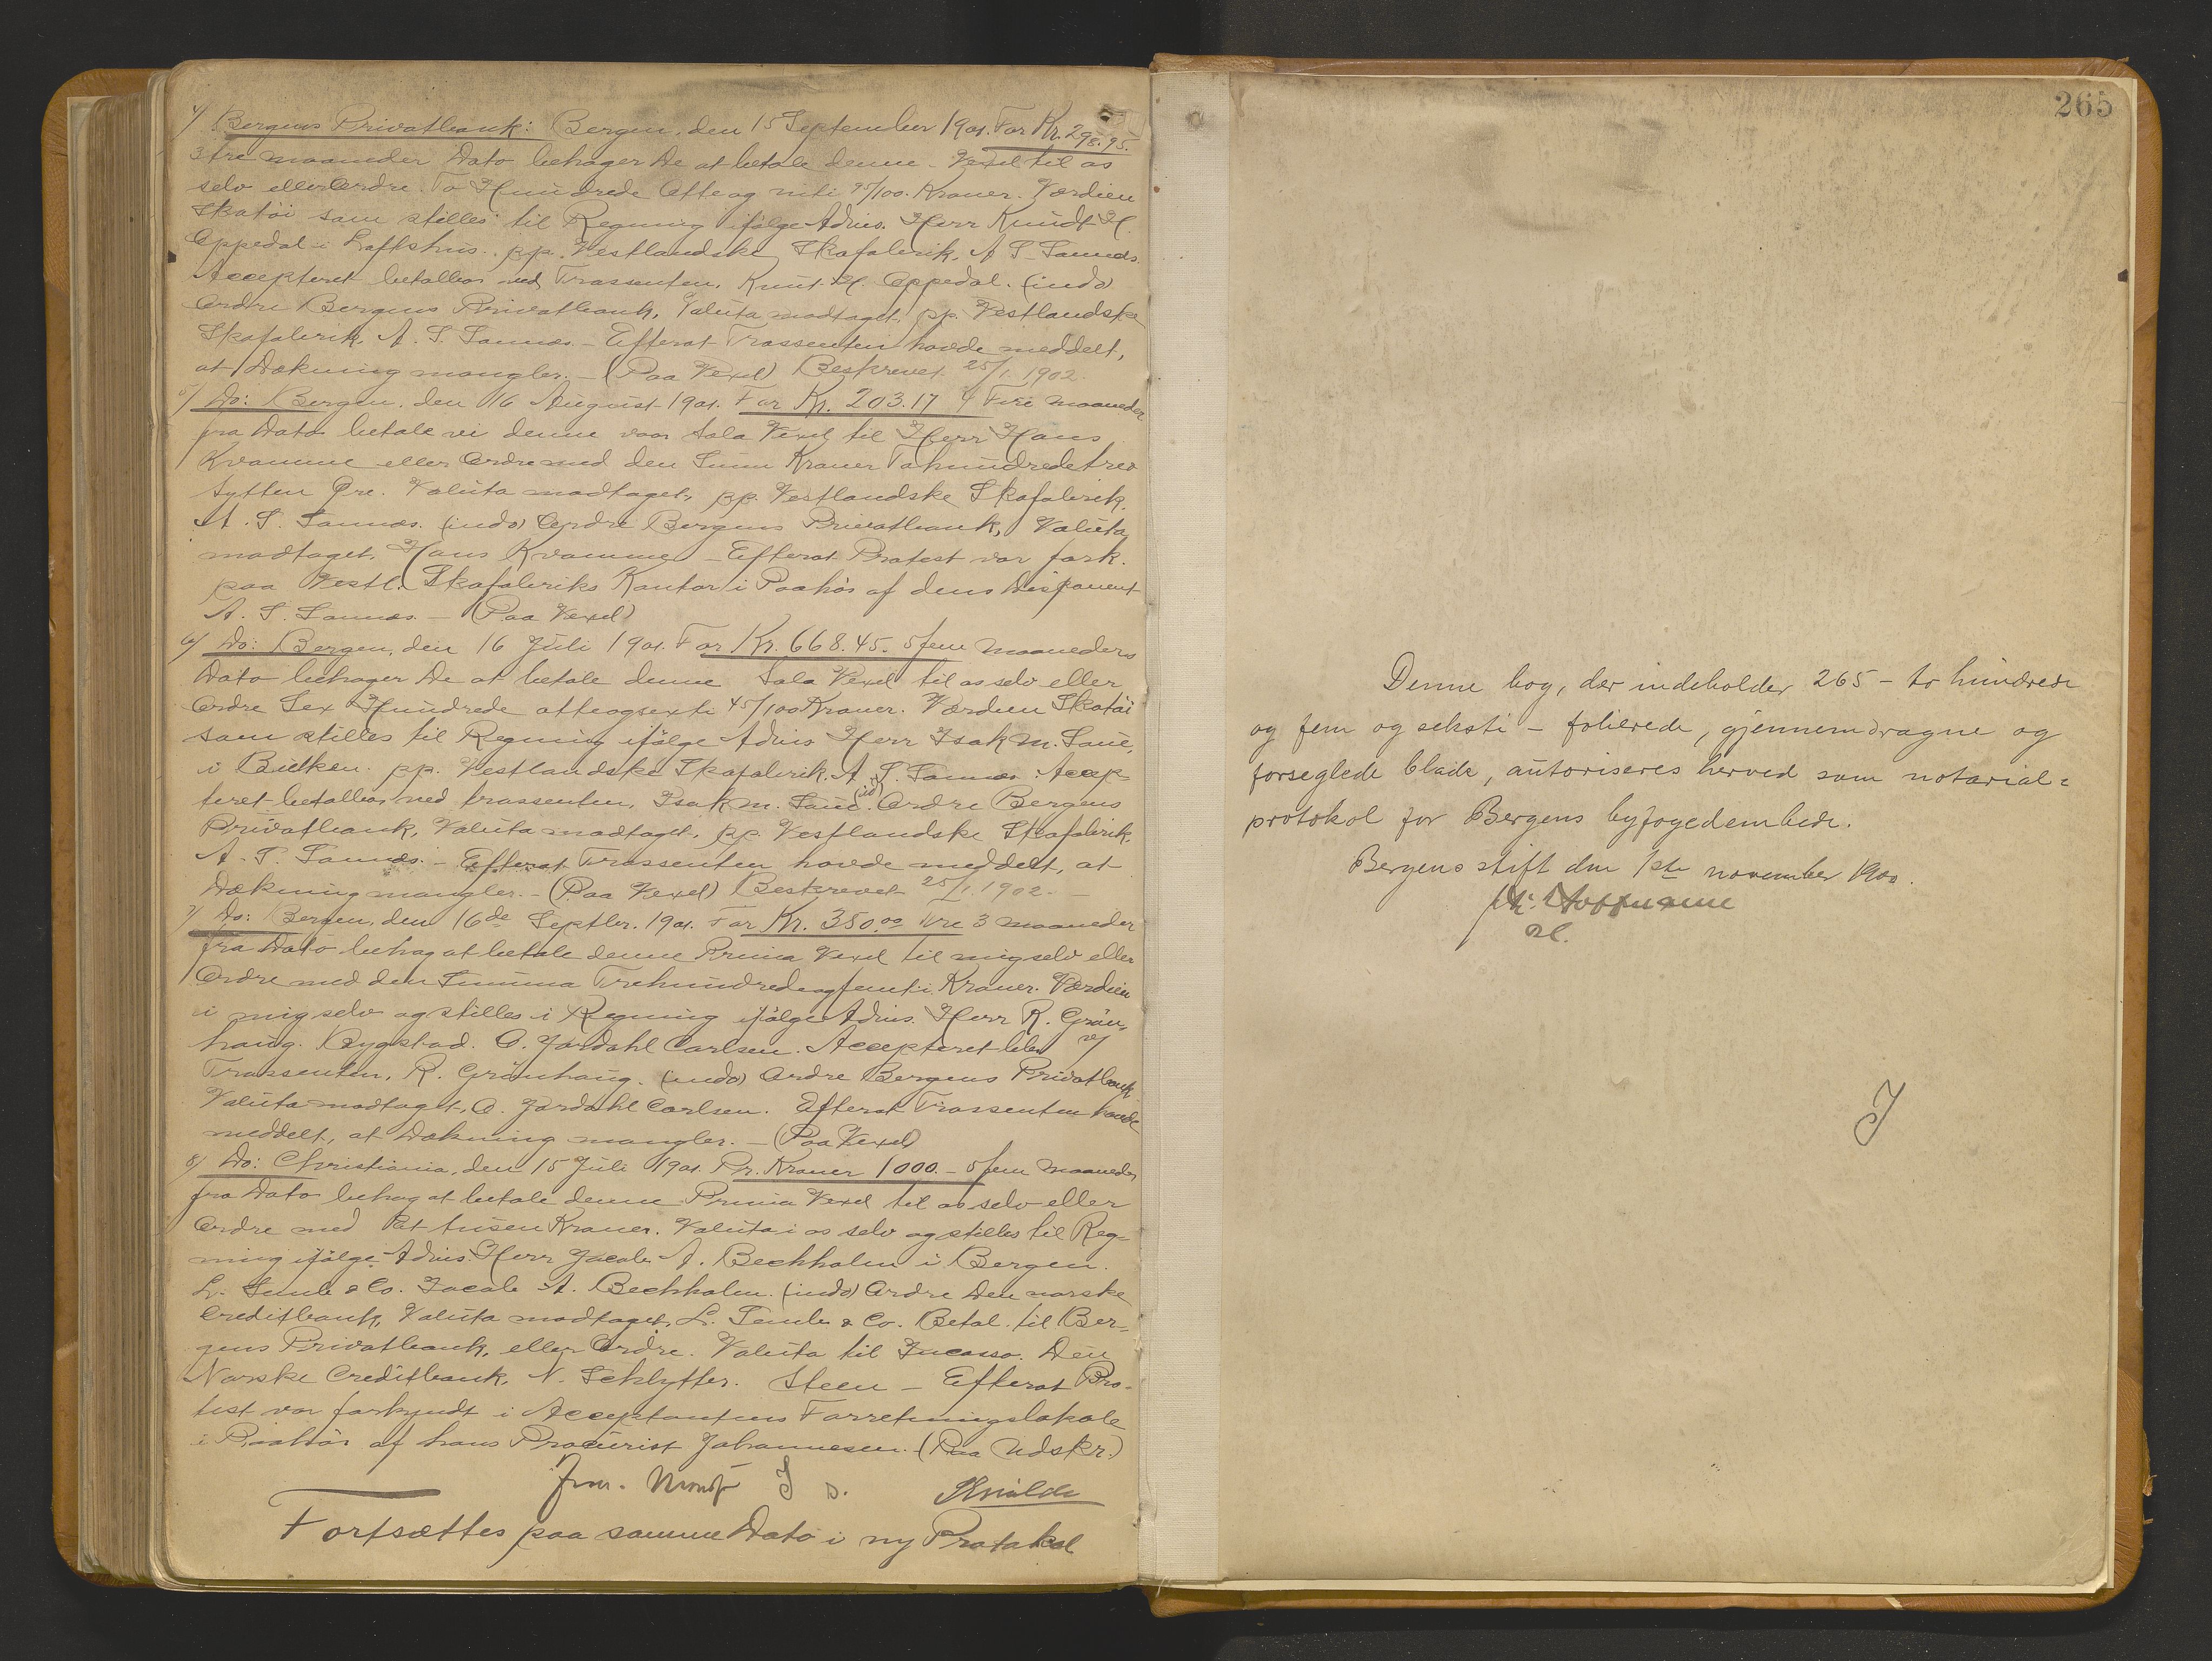 4) Bergens Privatbank: Bergen, den 15 September 1901. For Kr. 298.95.
3 tre maaneder Dato behager De at betale denne Vexel til os
selv eller Ordre To Hundrede Otte og niti 95/100 Kroner. Værdien
Skotöi som stilles til Regning ifölge Advis. Herr Knudt H.
Oppedal i Lofthus. pp. Vestlandske Skofabrik, A S Sannes.
Accepteret betalbar ved Trassenten, Knut H. Oppedal. (indo)
Ordre Bergens Privatbank, Valuta modtaget, pp. Vestlandske
Skofabrik, A. S. Sannes. - Efterat Trassenten havde meddelt,
at Dækning mangler. - (Paa Vexel) Beskrevet 25/1 1902.
5) Do: Bergen, den 16 August 1901. For Kr. 203.17 4 Fire maaneder
fra Dato betale vi denne vor Sola Vexel til Herr Hans
Kvamme eller Ordre med den Sum Kroner Tohundredetreo
Sytten Öre. Valuta modtaget, pp. Vestlandske Skofabrik,
A. S. Sannes. (indo) Ordre Bergens Privatbank, Valuta
modtaget, Hans Kvamme - Efterat Protest var fork.
paa Vestl. Skofabriks Kontor i Paahör af dens Disponent
A. S. Sannes. - (Paa Vexel)
6) Do: Bergen, den 16 Juli 1901. For Kr. 668.45. 5 fem maaneders
Dato behager De at betale denne Sola Vexel til os selv eller
Ordre Sex Hundrede otteogsexti 45/100 Kroner. Værdien Skotöi
som stilles til Regning ifölge Advis Herr Isak M. Saue,
i Bulken. pp. Vestlandske Skofabrik. A. S. Sannes. Accep-
teret betalbar ved trassenten, Isak M. Saue. (id) Ordre Bergens
Privatbank, Valuta modtaget, pp. Vestlandske Skofabrik,
A. S. Sannes. - Efterat Trassenten havde meddelt, at
Dækning mangler. - (Paa Vexel) Beskrevet 25/1 1902. -
7) Do: Bergen, den 16de Septbr. 1901. For Kr. 350.00 Tre 3 maaneder
fra Dato behag at betale denne Prima Vexel til mig selv eller
Ordre med den Summa Trehundredeogfemti Kroner. Værdien
i mig selv og stilles i Regning ifölge Advis. Herr R. Grön-
haug. Bygstad. O. Jordahl Carlsen. Accepteret bbr v/
Trassenten, R. Grönhaug. (indo) Ordre Bergens Privatbank
Valuta modtaget, O. Jordahl Carlsen. Efterat Trassenten havde
meddelt, at Dækning mangler. - (Paa Vexel)
8) Do: Christiania, den 15 Juli 1901. Pr. Kroner 1000. - 5 fem maaneder
fra Dato behag at betale denne Prima Vexel til os selv eller
Ordre med Et tusen Kroner. Valuta i os selv og stilles til Reg-
ning ifölge Advis. Herr Jacob A. Bechholm i Bergen.
L. Semb & Co. Jacob A. Bechholm. (indo) Ordre Den norske
Creditbank, Valuta modtaget, L. Semb & Co. Betal til Ber-
gens Privatbank, eller Ordre. Valuta til Incasso. Den
Norske Creditbank. N. Schlytter. Steen - Efterat Pro-
test var forkyndt i Acceptantens Forretningslokale
i Paahör af hans Procurist Johannesen. (Paa Udskr.)
Fortsættes paa samme Dato i ny Protokol
265
Denne bog, der indeholder 265 - to hundrede
og fem og seksti - folierede, gjennemdragne og
forseglede blade, autoriseres herved som notarial=
protokol for Bergens byfogedembede.
Bergens stift den 1ste november 1900.
J